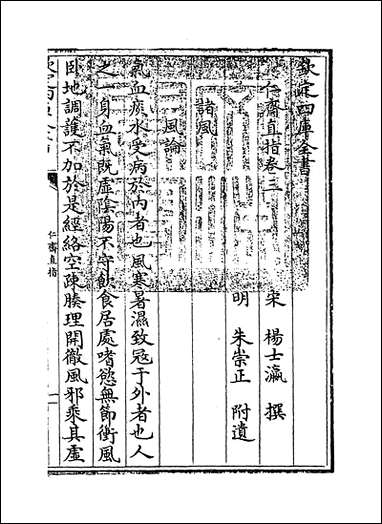 欽定四庫全書
仁齋直指卷三
宋 楊士瀛 撰
明 朱崇正 附遺
諸風
風論
氣血痰水受病於內者也風寒暑濕致寇于外者也人
之一身血氣既虛陰陽不守飲食居處嗜慾無節衝風
臥地調護不加於是經絡空疎腠理開徹風邪乘其虛
仁齋直指